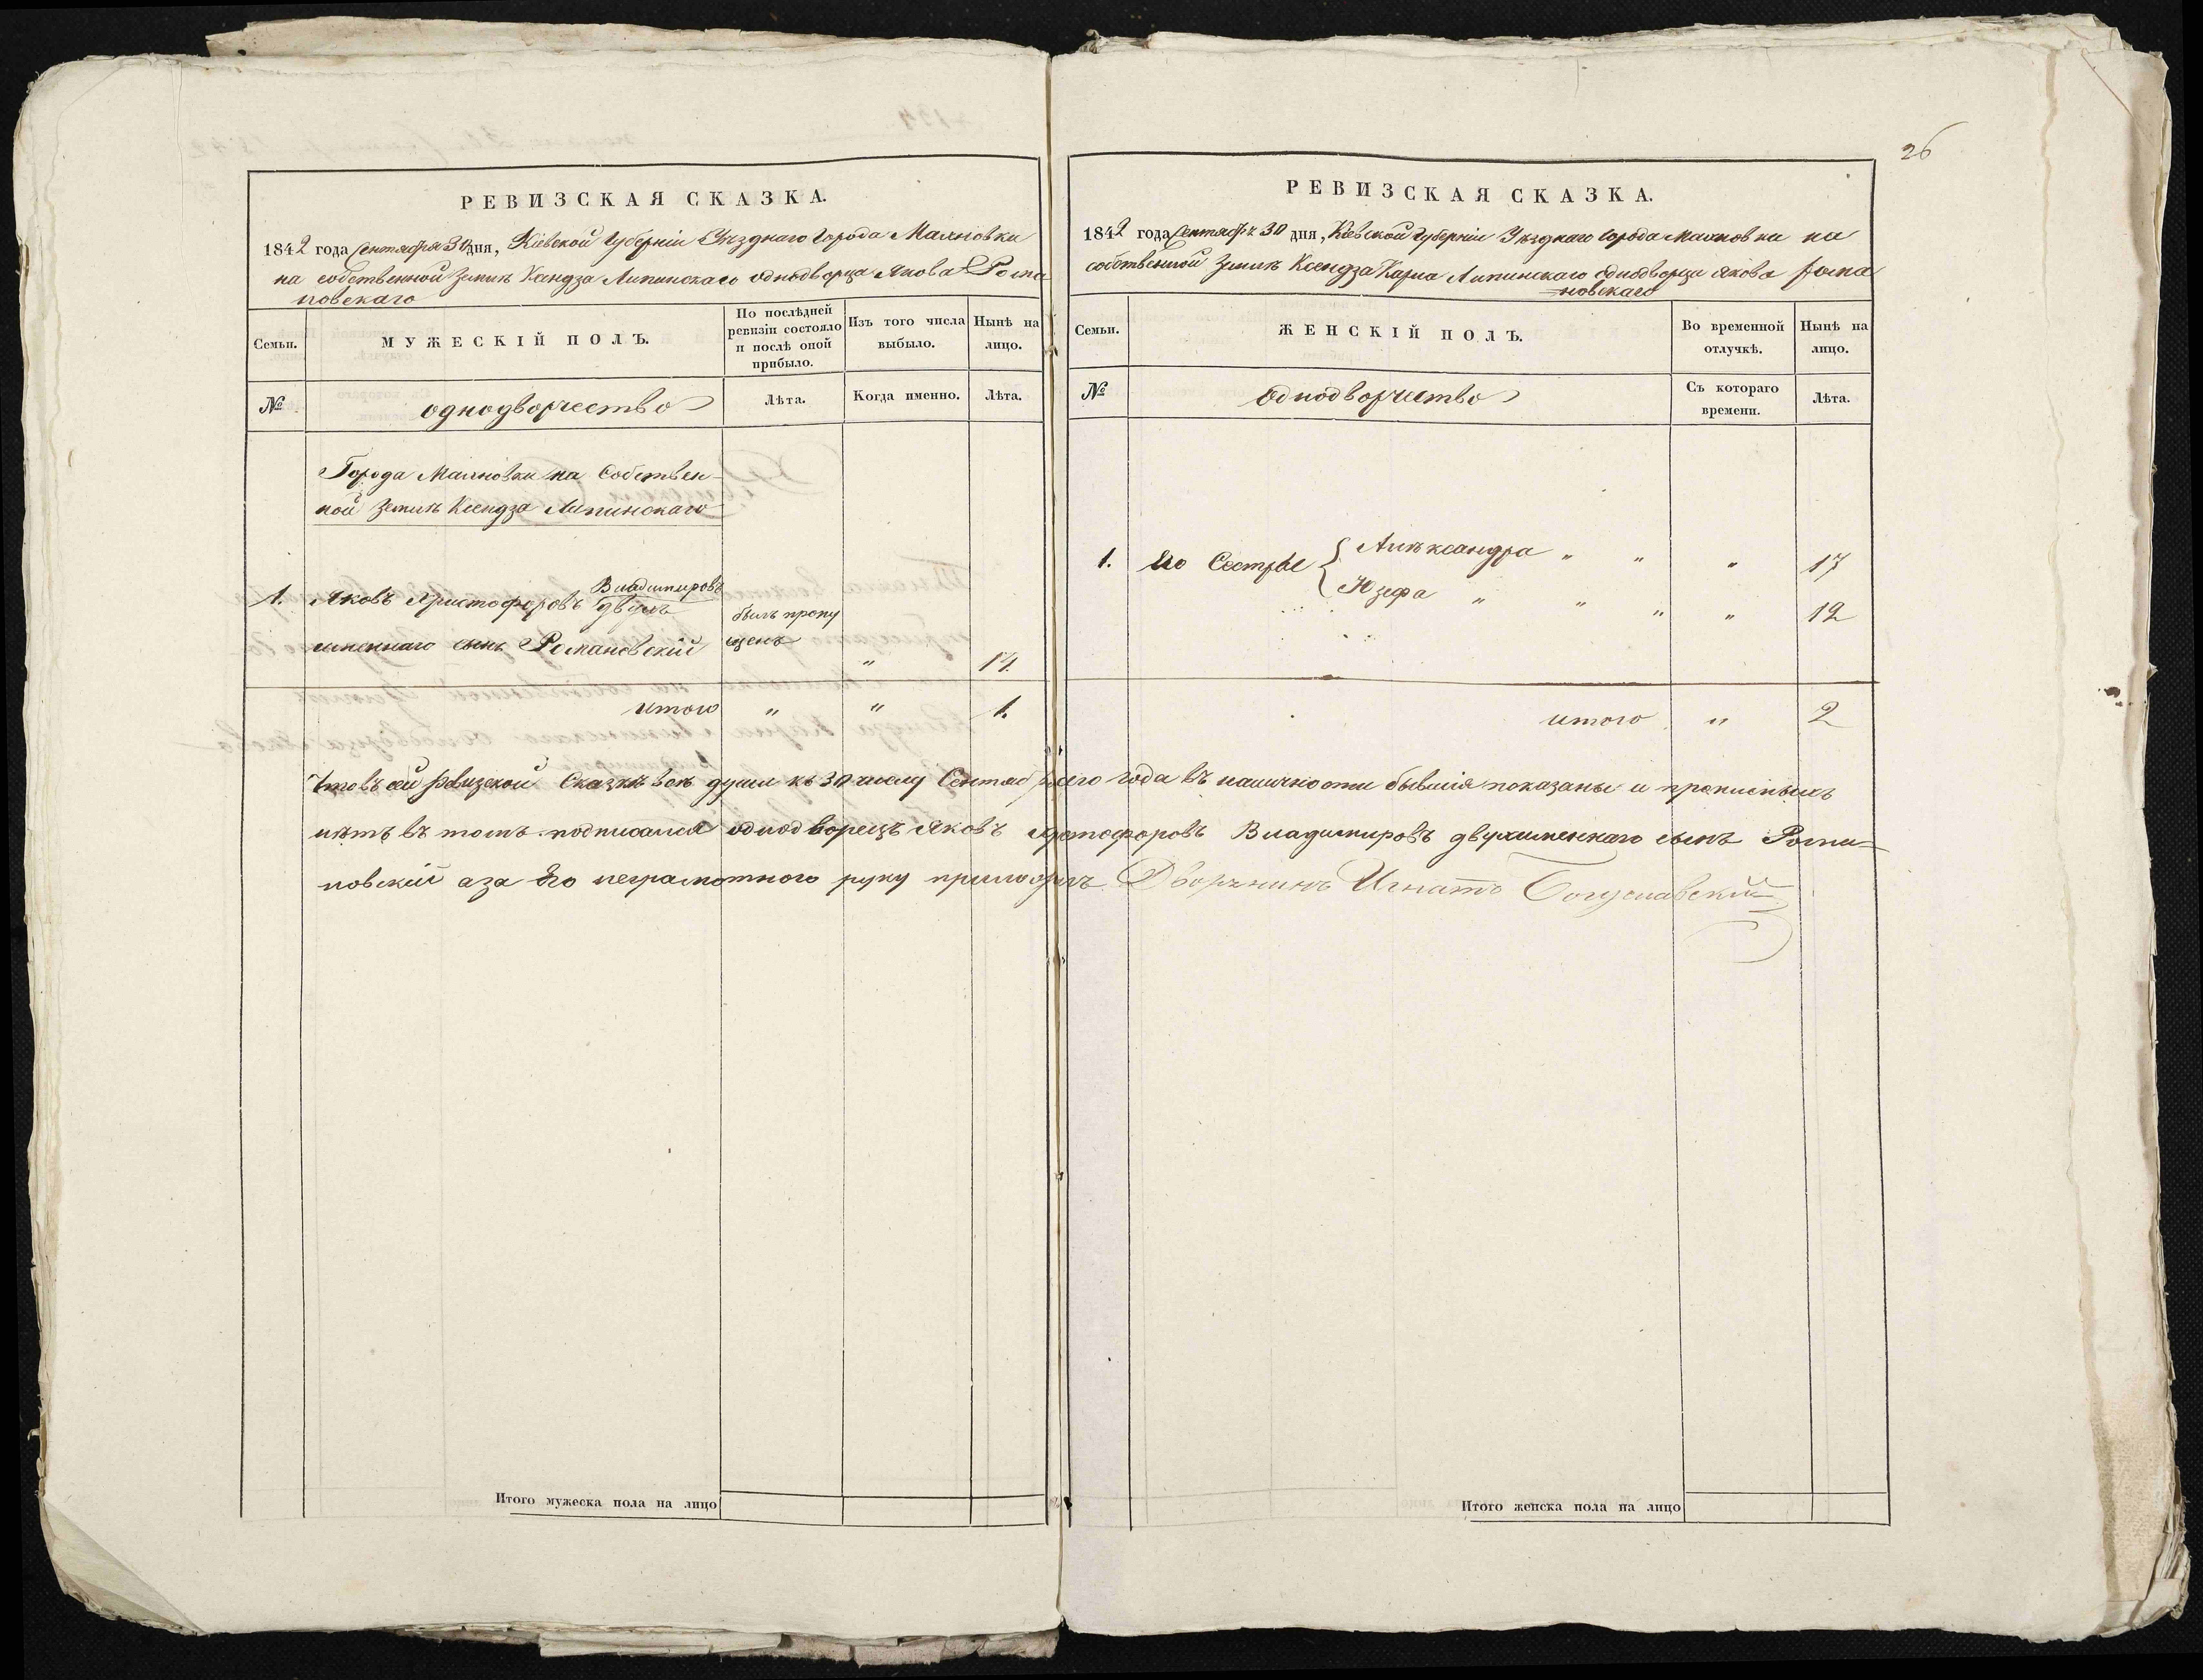 РЕВИЗСКАЯ СКАЗКА.
1842 года Сентября 30 дня, Кіевской Губерніи Уѣзднаго Города Махновки
на собственной Землѣ Ксендза Липинскаго однодворца Якова Рома
новскаго
Семьи.
МУЖЕСКІЙ ПОЛЪ.
По послѣдней
ревизіи состояло
и послѣ оной
прибыло.
Изъ того числа
выбыло.
Нынѣ на
лицо.
№
однодворчество
Лѣта.
Когда именно.
Лѣта.
Города Махновки на Собствен-
ной Землѣ Ксендза Липинскаго
1. Яковъ Христофоровъ Владимировъ двухъ
именнаго сынъ Романовскій
былъ пропу
щенъ
"
итого " " 1.
26
РЕВИЗСКАЯ СКАЗКА.
1842 года Сентября 30 дня, Кіевской Губерніи Уѣзднаго Города Махновки на
собственной Землѣ Ксендза Карла Липинскаго однодворца Якова Рома
=новскаго
Семьи.
ЖЕНСКІЙ ПОЛЪ.
Во временной
отлучкѣ.
Нынѣ на
лицо.
№
однодворчество
Съ котораго
времени.
Лѣта.
1. Его Сестры { Алѣксандра " " " 17
Юзефа " " " " 12
итого " 2
Что въ сей Ревизской Сказкѣ всѣ души къ 30 числу Сентября сего года въ наличности бывшія показаны и прописныхъ
нѣтъ въ томъ подписался однодворецъ Яковъ Христофоровъ Владимировъ двухименнаго сынъ Рома=
новскій а за Его неграмотного руку приложилъ Дворянинъ Игнатъ Богуславскій
Итого мужеска пола на лицо
Итого женска пола на лицо